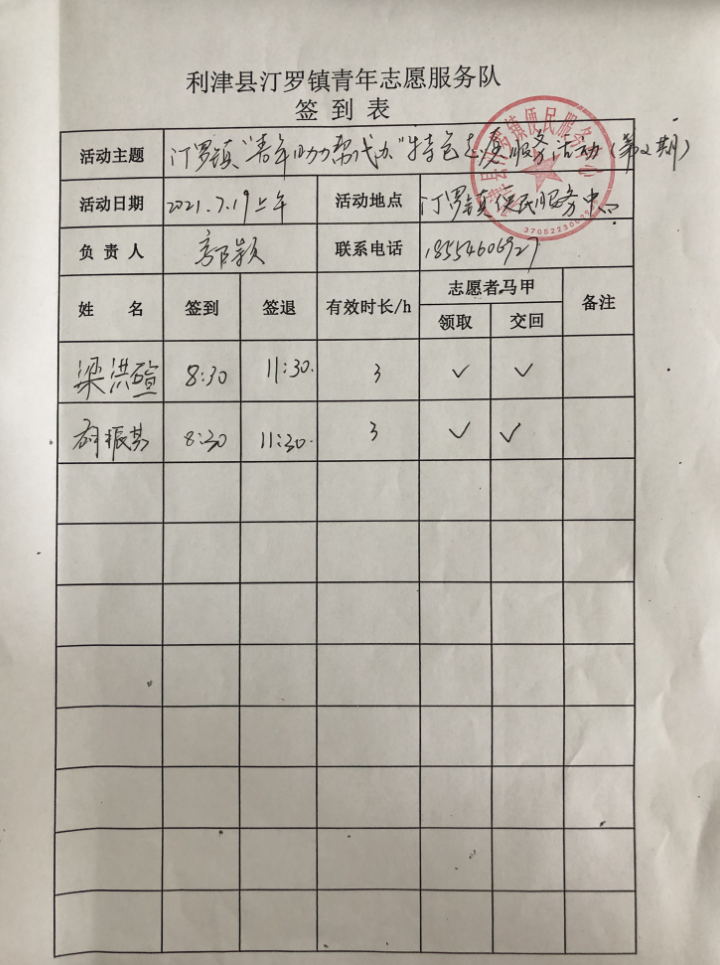 利津县汀罗镇青年志愿服务队
签到表
活动主题 汀罗镇"青年助力帮代办"特色志愿服务活动(第2期)
活动日期 2021.7.19上午 活动地点 汀罗镇便民服务中心
负责人 联系电话 18554606927
姓名 签到 签退 有效时长/h 志愿者马甲 备注
领取 交回
梁洪 8:30 11:30. 3 ✓ ✓
振其 8:30 11:30. 3 ✓ ✓
汀罗镇便民服务中心